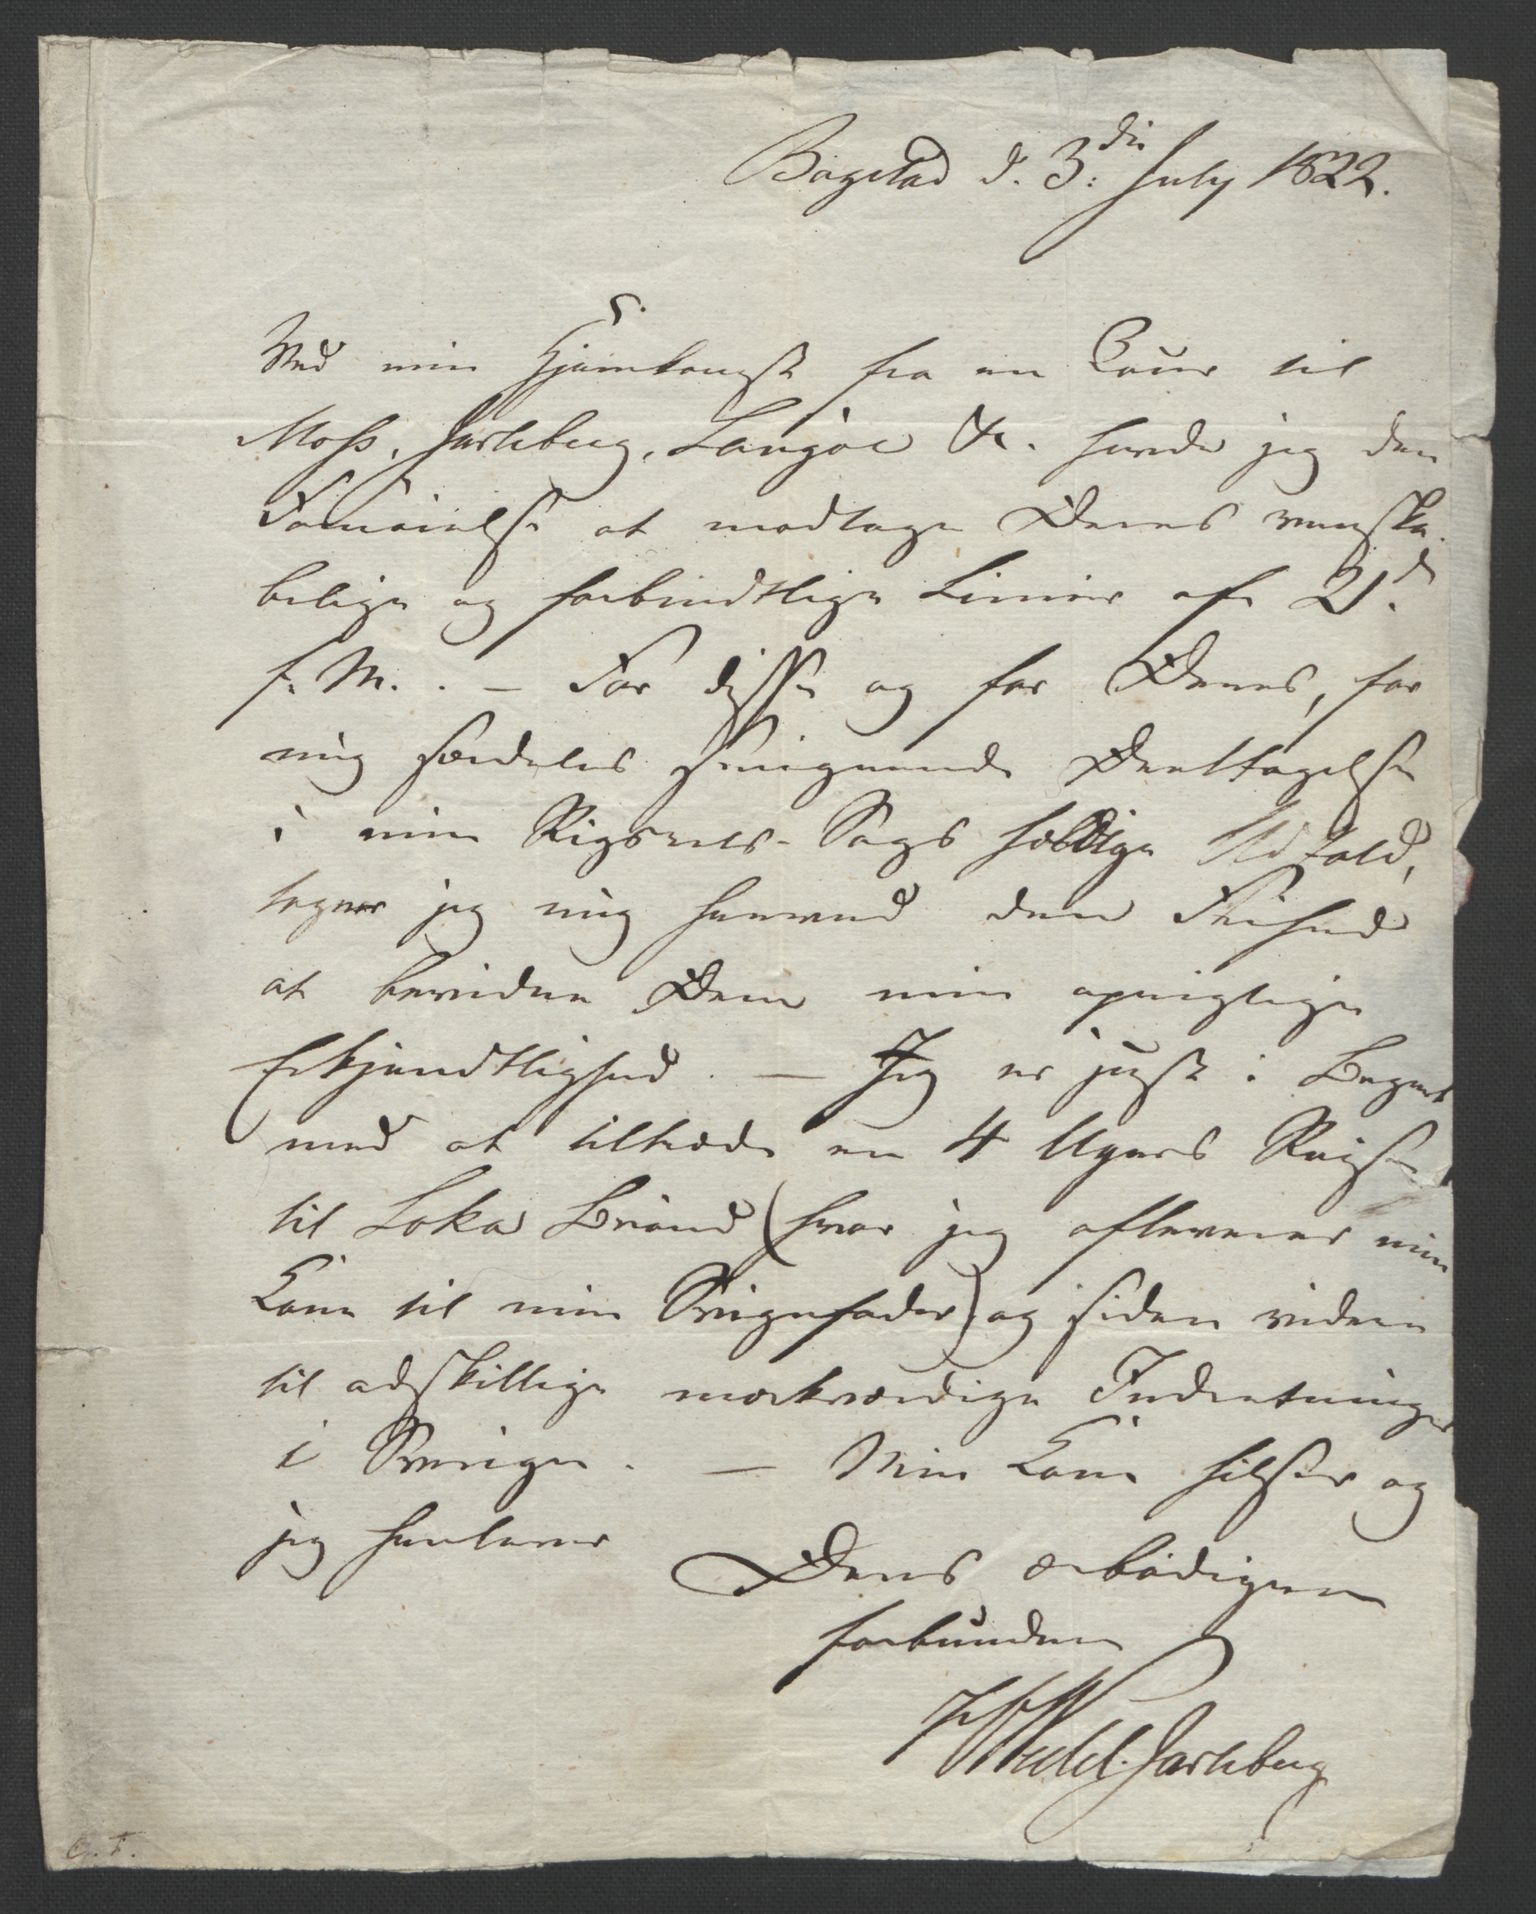 Bogstad d. 3die July 1822.
S.
Ved min Hjemkomst fra en Tour til
Moss, Jarlsberg, Langøe &c. havde jeg den
Fornøielse at modtage Deres venska-
belige og forbindtlige Linier af 21d
f. M. . – For disse og for Deres, for
mig særdeles smigrende Deeltagelse
i min Rigsrets-Sags heldige Udfald,
tager jeg mig herved den Frihed
at bevidne Dem min oprigtige
Erkjendtlighed. – Jeg er just i Begreb
med at tiltræde en 4 Ugers Reise
til Loka Brønd (hvor jeg afleverer min
Kone til min Svigerfader) og siden videre
til adskillige mærkværdige Indretninger
i Sverige. – Min Kone hilser og
jeg henlever
Deres ærbødigen
forbundne
H Wedel Jarlsberg
C. F.